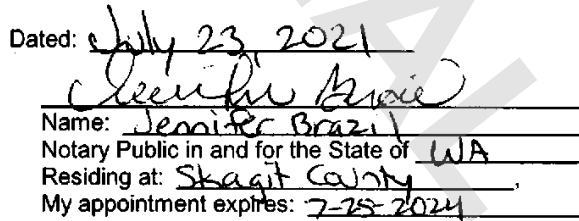 Dated: July 23, 2021
Name: Jennifer Brazil
Notary Public in and for the State of WA
Residing at: Skagit County,
My appointment expires: 7-25-2024